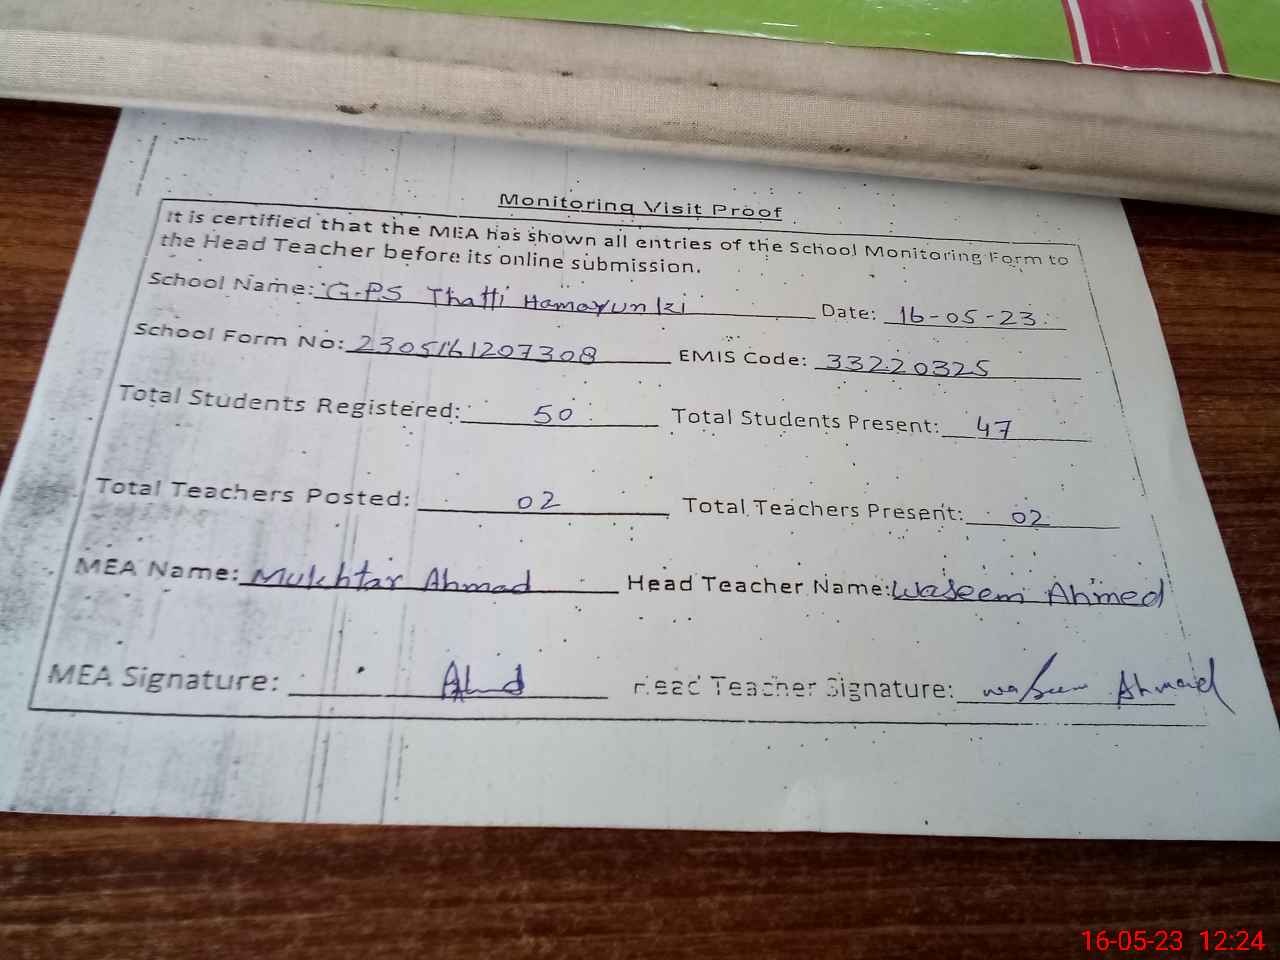 Monitoring Visit Proof
It is certified that the MEA has shown all entries of the School Monitoring Form to
the Head Teacher before its online submission.
School Name: G.PS Thatti Hamayun ki Date: 16-05-23
School Form No: 2305161207308 EMIS Code: 33220325
Total Students Registered: 50 Total Students Present: 47
Total Teachers Posted: 02 Total Teachers Present: 02
MEA Name: Mukhtar Ahmad Head Teacher Name: Waseem Ahmed
MEA Signature: Head Teacher Signature: waseem Ahmed
16-05-23 12:24